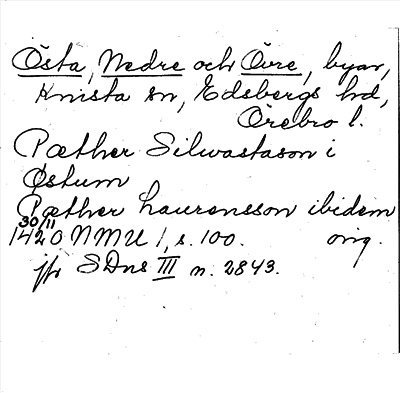 Östa, Nedre och Övre, byar,
Knista sn, Edsbergs hd,
Örebro l.
Pæther Silwastason i
Østum
Pæther Laurensson ibidem
1420 30/11 NMU 1, s. 100. orig.
jfr SDns III n. 2843.